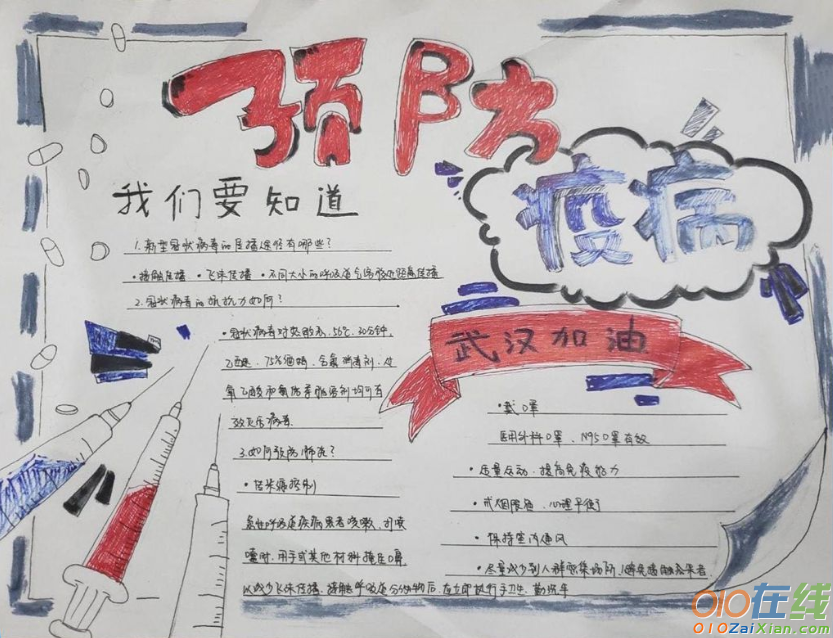 预防
疫病
我们要知道
1.新型冠状病毒的传播途径有哪些?
·接触传播 ·飞沫传播 ·不同大小的呼吸道气溶胶近距离传播
2.冠状病毒的抵抗力如何?
·冠状病毒对热敏感,56℃,30分钟,
乙醚,75%酒精,含氯消毒剂,过
氧乙酸和氯仿等脂溶剂均可有
效灭活病毒
3.如何预防肺炎?
急性呼吸道疾病患者咳嗽,打喷
嚏时,用手或其他材料掩住口鼻
以减少飞沫传播,接触呼吸道分泌物后,应立即执行手卫生,勤洗手
武汉加油
·戴口罩
医用外科口罩、N95口罩有效
·适量运动,提高免疫能力
·戒烟限酒,心理平衡
·保持室内通风
·尽量减少到人群密集场所,避免接触患者
010在线
010ZaiXian.com